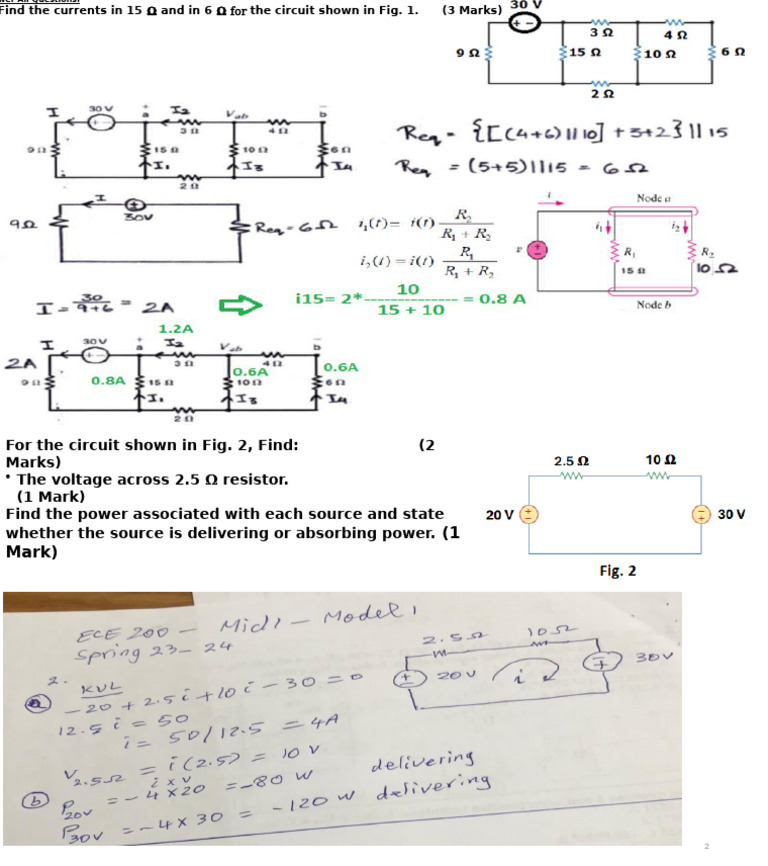 Find the currents in 15 Ω and in 6 Ω for the circuit shown in Fig. 1. (3 Marks)
30 V
3 Ω
4 Ω
9 Ω
15 Ω
10 Ω
6 Ω
2 Ω
I
30V
a
I2
Vab
b
3Ω
4Ω
9Ω
15Ω
10Ω
6Ω
I1
I3
I4
2Ω
Req = {[(4+6)||10] + 3+2} || 15
Req = (5+5)||15 = 6Ω
I
9Ω
30V
Req = 6Ω
i1(t) = i(t) R2 / R1 + R2
i2(t) = i(t) R1 / R1 + R2
i
Node a
i1
i2
v
R1
R2
15 Ω
10 Ω
Node b
I = 30/9+6 = 2A
10
i15= 2*-------------- = 0.8 A
15 + 10
1.2A
I
30V
a
I2
Vab
b
2A
3Ω
4Ω
0.6A
0.6A
9Ω
0.8A
15Ω
10Ω
6Ω
I1
I3
I4
2Ω
For the circuit shown in Fig. 2, Find: (2
Marks)
• The voltage across 2.5 Ω resistor.
(1 Mark)
Find the power associated with each source and state
whether the source is delivering or absorbing power. (1
Mark)
2.5 Ω
10 Ω
20 V
30 V
Fig. 2
ECE 200 - Mid1 - Model 1
Spring 23-24
2.
KVL
a -20 + 2.5i + 10i - 30 = 0
12.5 i = 50
i = 50/12.5 = 4A
V2.5Ω = i(2.5) = 10 V
i x v
b P20V = -4 x 20 = -80 W delivering
P30V = -4 x 30 = -120 W delivering
2.5Ω
10Ω
20V
i
30V
2